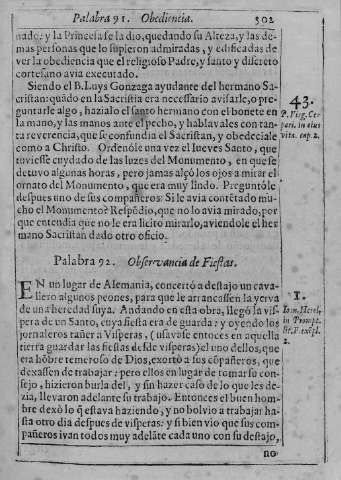 Palabra 91. Obediencia. 302
nado; y la Princesa se la dio, quedando su Alteza, y las de-
mas personas que lo supieron admiradas, y edificadas de
ver la obediencia que el religioso Padre, y santo y discreto
cortesano avia executado.
Siendo el B. Luys Gonzaga ayudante del hermano Sa-
cristan: quãdo en la Sacristia era necessario avisarle, o pre-
guntarle algo, hazialo el santo hermano con el bonete en
la mano, y las manos ante el pecho, y hablavales con tan-
ta reverencia, que se confundia el Sacristan, y obedeciale
como a Christo. Ordenóle una vez el Jueves Santo, que
tuviesse cuydado de las luzes del Monumento, en que se
detuvo algunas horas, pero jamas alçó los ojos a mirar el
ornato del Monumento, que era muy lindo. Preguntóle
despues uno de sus compañeros: Si le avia contẽtado mu-
cho el Monumento? Respõdio, que no lo avia mirado, por
que entendia que no le era licito mirarlo, aviendole el her
mano Sacristan dado otro oficio.
43.
P. Virg. Ce-
pari. in eius
vita. cap. 2.
Palabra 92. Observancia de Fiestas.
EN un lugar de Alemania, concertò a destajo un cava-
llero algunos peones, para que le arrancassen la yerva
de una heredad suya. Andando en esta obra, llegò la vis-
pera de un Santo, cuya fiesta era de guarda: y oyendo los
jornaleros tañer a Visperas, (usavase entoces en aquella
tierra guardar las fiestas desde visperas) el uno dellos, que
era hõbre temeroso de Dios, exortò a sus cõpañeros, que
dexassen de trabajar: pero ellos en lugar de tomar su con-
sejo, hizieron burla del, y sin hazer caso de lo que les de-
zia, llevaron adelante su trabajo. Entonces el buen hom-
bre dexò lo q̃ estava haziendo, y no bolvio a trabajar has-
ta otro dia despues de visperas: y si bien vio que sus com-
pañeros ivan todos muy adelãte cada uno con su destajo,
no
1.
in Prompt.
2.